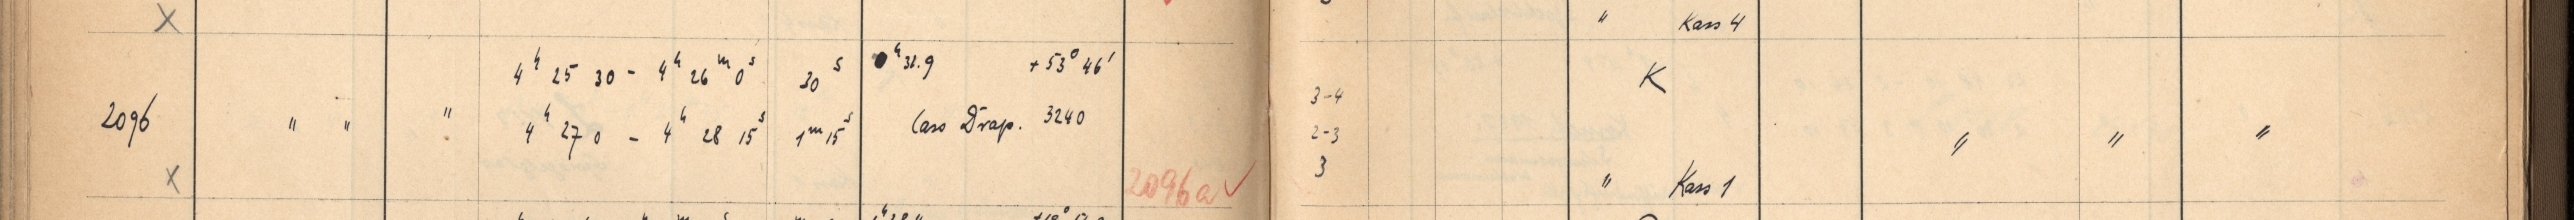 X " Kass 4
4ʰ 25 30 - 4ʰ 26ᵐ 0ˢ 30ˢ 0ʰ 31.9 +53° 46' K
3-4
2096 " " " 4ʰ 27 0 - 4ʰ 28 15ˢ 1ᵐ 15ˢ Cass Drap. 3240 2-3 " " "
X 2096a ✓ 3 " Kass 1